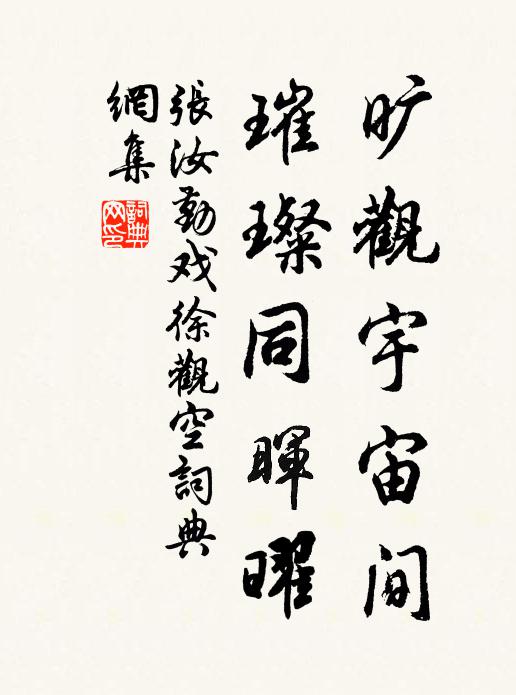 旷觀宇宙间
璀璨同暉曜
張汝勤戏徐觀空詞典
網集
詞典網印